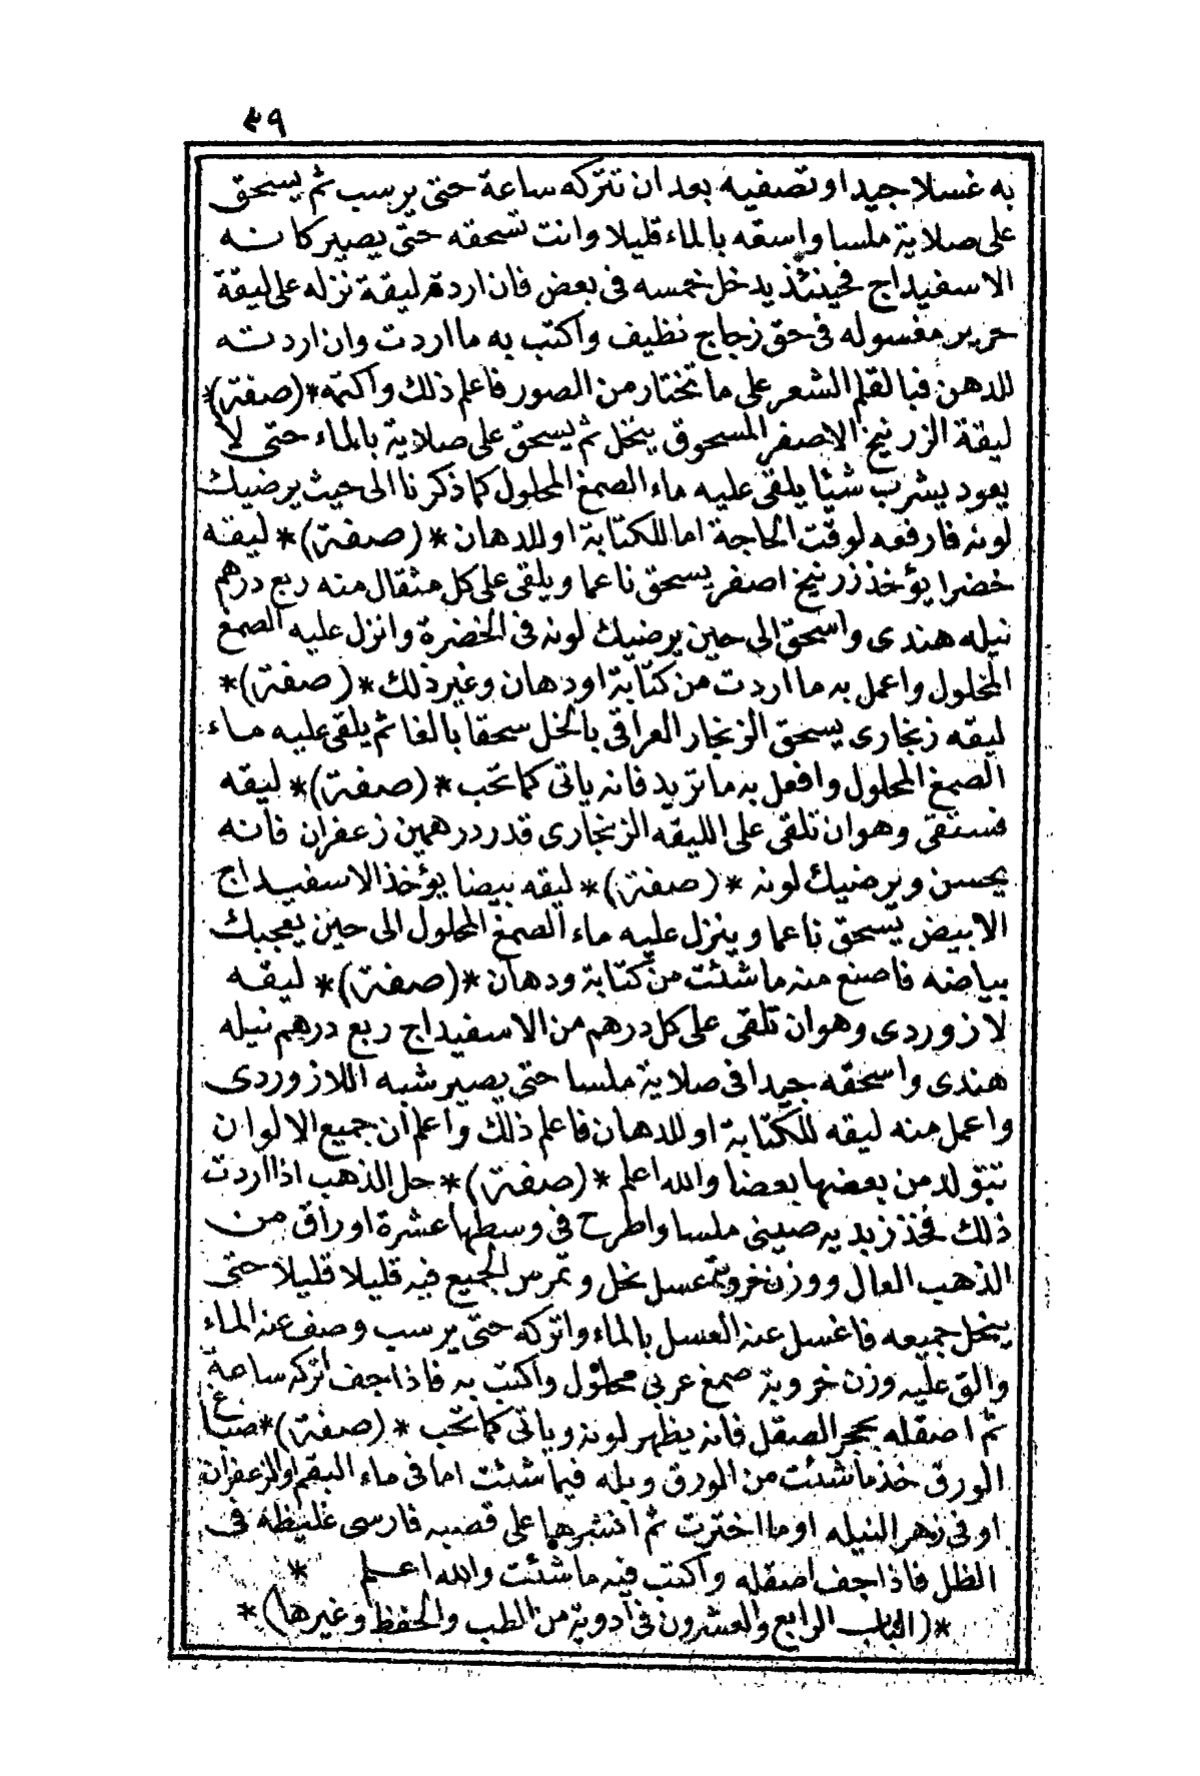 ٤٩
به غسلا جيدا وتصفيه بعد ان تتركه ساعة حتى يرسب ثم يسحق
على صلاية ملسا واسقه بالماء قليلا وانت تسحقه حتى يصير كانه
الاسفيداج فحينئذ يدخل خمسه فى بعض فان اردة ليقة نزله على ليقة
حرير مغسوله فى حق زجاج نظيف واكتب به ما اردت وان اردته
للدهن فبالقلم الشعر على ما تختار من الصور فاعلم ذلك واكتمه *(صفة)*
ليقة الزرنيخ الاصفر المسحوق ينخل ثم يسحق على صلاية بالماء حتى لا
يعود يشرب شيئا يلقى عليه ماء الصمغ المحلول كما ذكرنا الى حيث يرضيك
لونه فارفعه لوقت الحاجة اما للكتابة او للدهان *(صفة)* ليقه
خضرا يؤخذ زرنيخ اصفر يسحق ناعما ويلقى على كل مثقال منه ربع درهم
نيله هندى واسحق الى حين يرضيك لونه فى الخضرة وانزل عليه الصمغ
المحلول واعمل به ما اردت من كتابة او دهان وغير ذلك *(صفة)*
ليقه زنجارى يسحق الزنجار العراقى بالخل سحقا بالغا ثم يلقى عليه ماء
الصمغ المحلول وافعل به ما تريد فانه ياتى كما تحب *(صفة)* ليقه
فستقى وهو ان تلقى على الليقه الزنجارى قدر درهمين زعفران فانه
يحسن ويرضيك لونه *(صفة)* ليقه بيضا يؤخذ الاسفيداج
الابيض يسحق ناعما وينزل عليه ماء الصمغ المحلول الى حين يعجبك
بياضه فاصنع منه ما شئت من كتابة ودهان *(صفة)* ليقه
لازوردى وهو ان تلقى على كل درهم من الاسفيداج ربع درهم نيله
هندى واسحقه جيدا فى صلاية ملسا حتى يصير شبه اللازوردى
واعمل منه ليقه للكتابة او للدهان فاعلم ذلك واعلم ان جميع الالوان
تتولد من بعضها بعضا والله اعلم *(صفة)* حل الذهب اذا اردت
ذلك فخذ زبديه صينى ملسا واطرح فى وسطها عشرة اوراق من
الذهب العال ووزن خروبة عسل نحل وتمرس الجميع فيه قليلا قليلا حتى
ينحل جميعه فاغسل عنه العسل بالماء واتركه حتى يرسب وصف عنه الماء
والق عليه وزن خروبة صمغ عربى محلول واكتب به فاذا جف اتركه ساعة
ثم اصقله بحجر الصقل فانه يظهر لونه وياتى كما تحب *(صفة)* صباغ
الورق خذ ما شئت من الورق وبله فيما شئت اما فى ماء البقم او الزعفران
او فى زهر النيله او ما اخترت ثم انشرها على قصبه فارسى غليظه فى
الظل فاذا جف اصقله واكتب فيه ما شئت والله اعلم *
*(الباب الرابع والعشرون فى ادوية من الطب والحفظ وغيرها)*